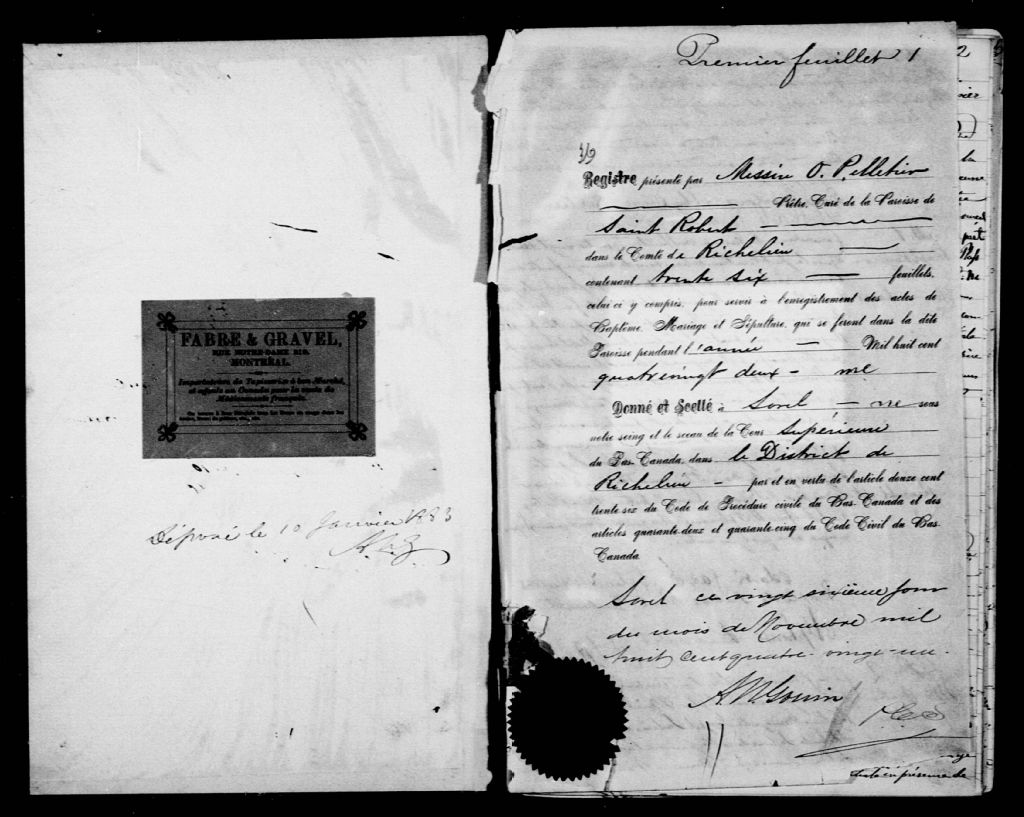 FABRE & GRAVEL,
RUE NOTRE-DAME 219,
MONTRÉAL.
Importateurs de Tapisseries à bon Marché,
et agents au Canada pour la vente de
Médicaments français.
Déposé le 10 Janvier 1883
Premier feuillet 1
Registre présenté par Messire O. Pelletier
Prêtre, Curé de la Paroisse de
Saint Robert
dans le Comté de Richelieu
contenant trente six feuillets,
celui ci y compris, pour servir à l'enregistrement des actes de
Baptême, Mariage et Sépulture, qui se feront dans la dite
Paroisse pendant l'année Mil huit cent
quatrevingt deux - me
Donné et Scellé à Sorel - ne sous
notre seing et le sceau de la Cour Supérieure
du Bas-Canada, dans le District de
Richelieu - par et en vertu de l'article douze cent
trente six du Code de Procédure civile du Bas-Canada et des
articles quarante-deux et quarante-cinq du Code Civil du Bas-
Canada
Sorel ce vingt sixième jour
du mois de Novembre mil
huit cent quatre-vingt-un.
A N Gouin
2